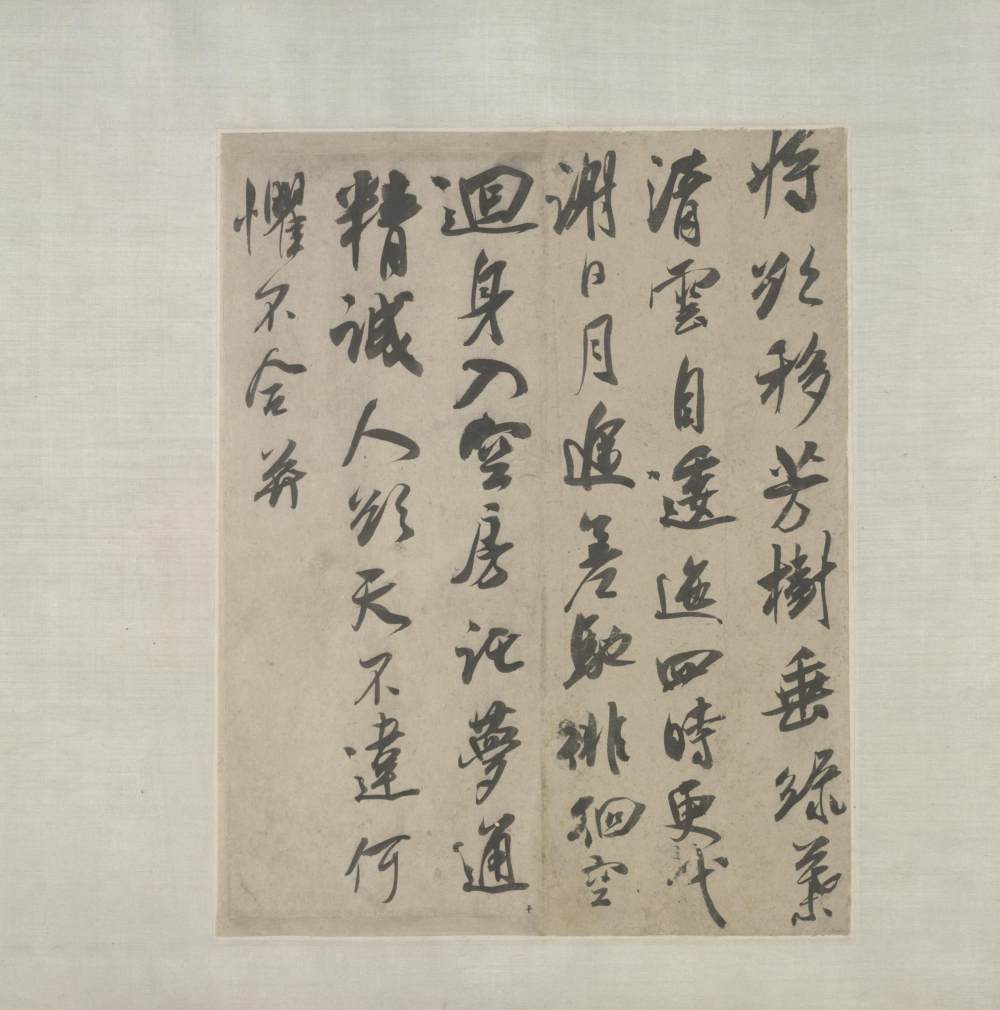 將欲移芳樹垂綠葉
清雲自逶迤四時更代
謝日月遞差馳徘徊空
迴身入空房託夢通
精誠人欲天不違何
懼不合并